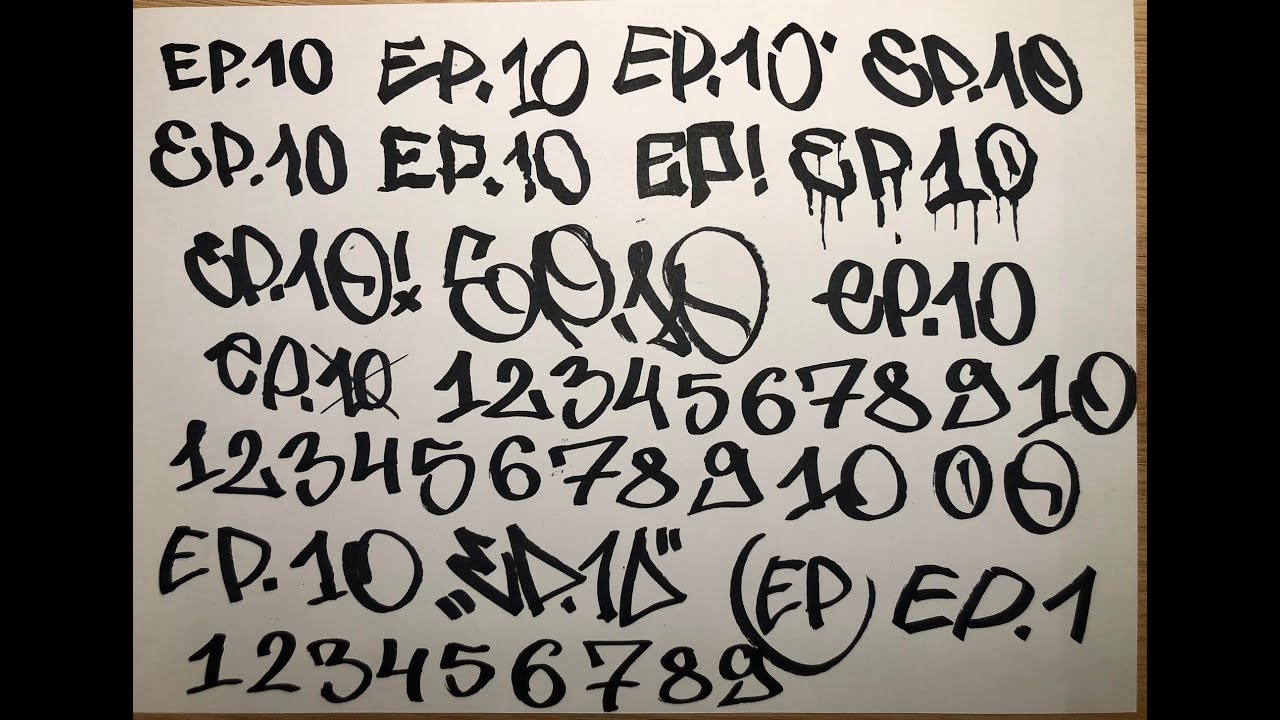 EP.10 EP.10 EP.10 EP.10
EP.10 EP.10 EP! EP.10
EP.10! EP.10 EP.10
EP.10 1 2 3 4 5 6 7 8 9 10
1 2 3 4 5 6 7 8 9 10 0 0
EP.10 "EP.10" (EP) EP.1
1 2 3 4 5 6 7 8 9